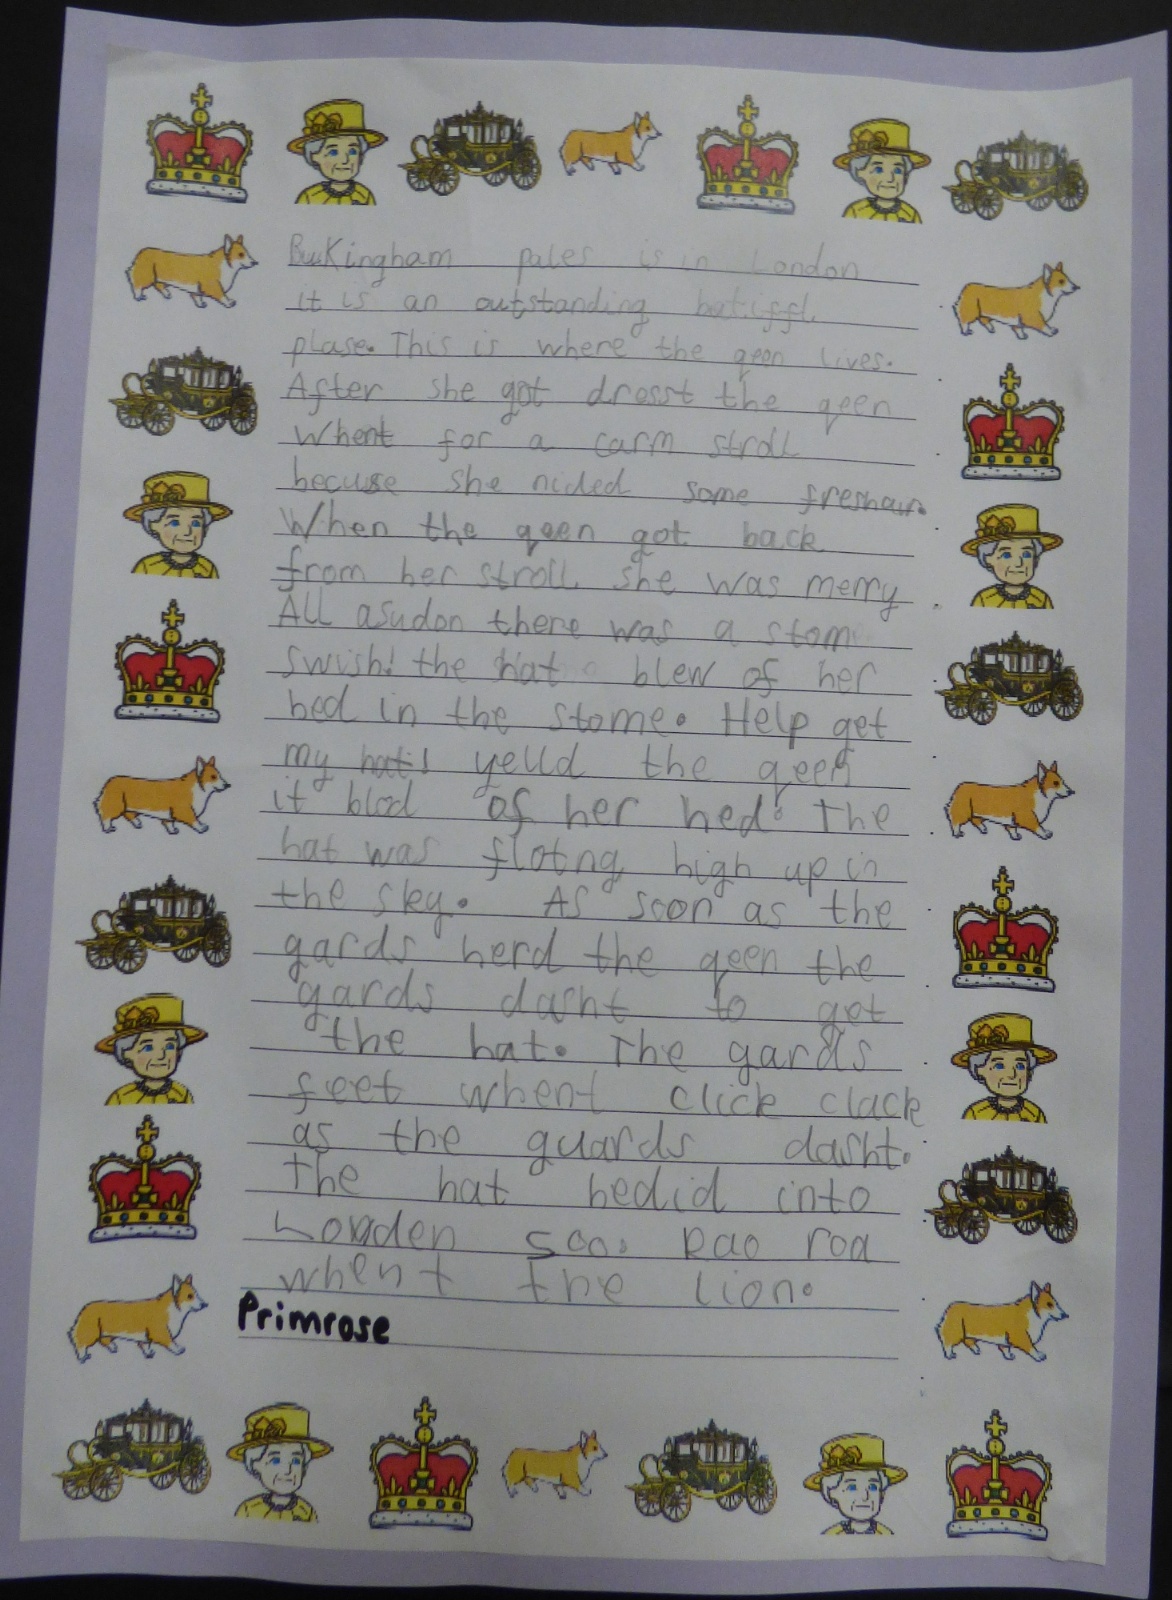 Buckingham pales is in London
it is an outstanding batiffl
plase. This is where the qeen lives.
After she got dresst the qeen
Whent for a carm stroll
becuse she nided some freshair.
When the qeen got back
from her stroll she was merry
All asudon there was a stome
swish! the hat blew of her
hed in the stome. Help get
my hat! yelld the qeen
it blod of her hed. The
hat was flotng high up in
the sky. As soon as the
gards herd the qeen the
gards dasht to get
the hat. The gards
feet whent click clack
as the guards dasht.
The hat hedid into
Longden Soo. Rao roa
whent the lion.
Primrose